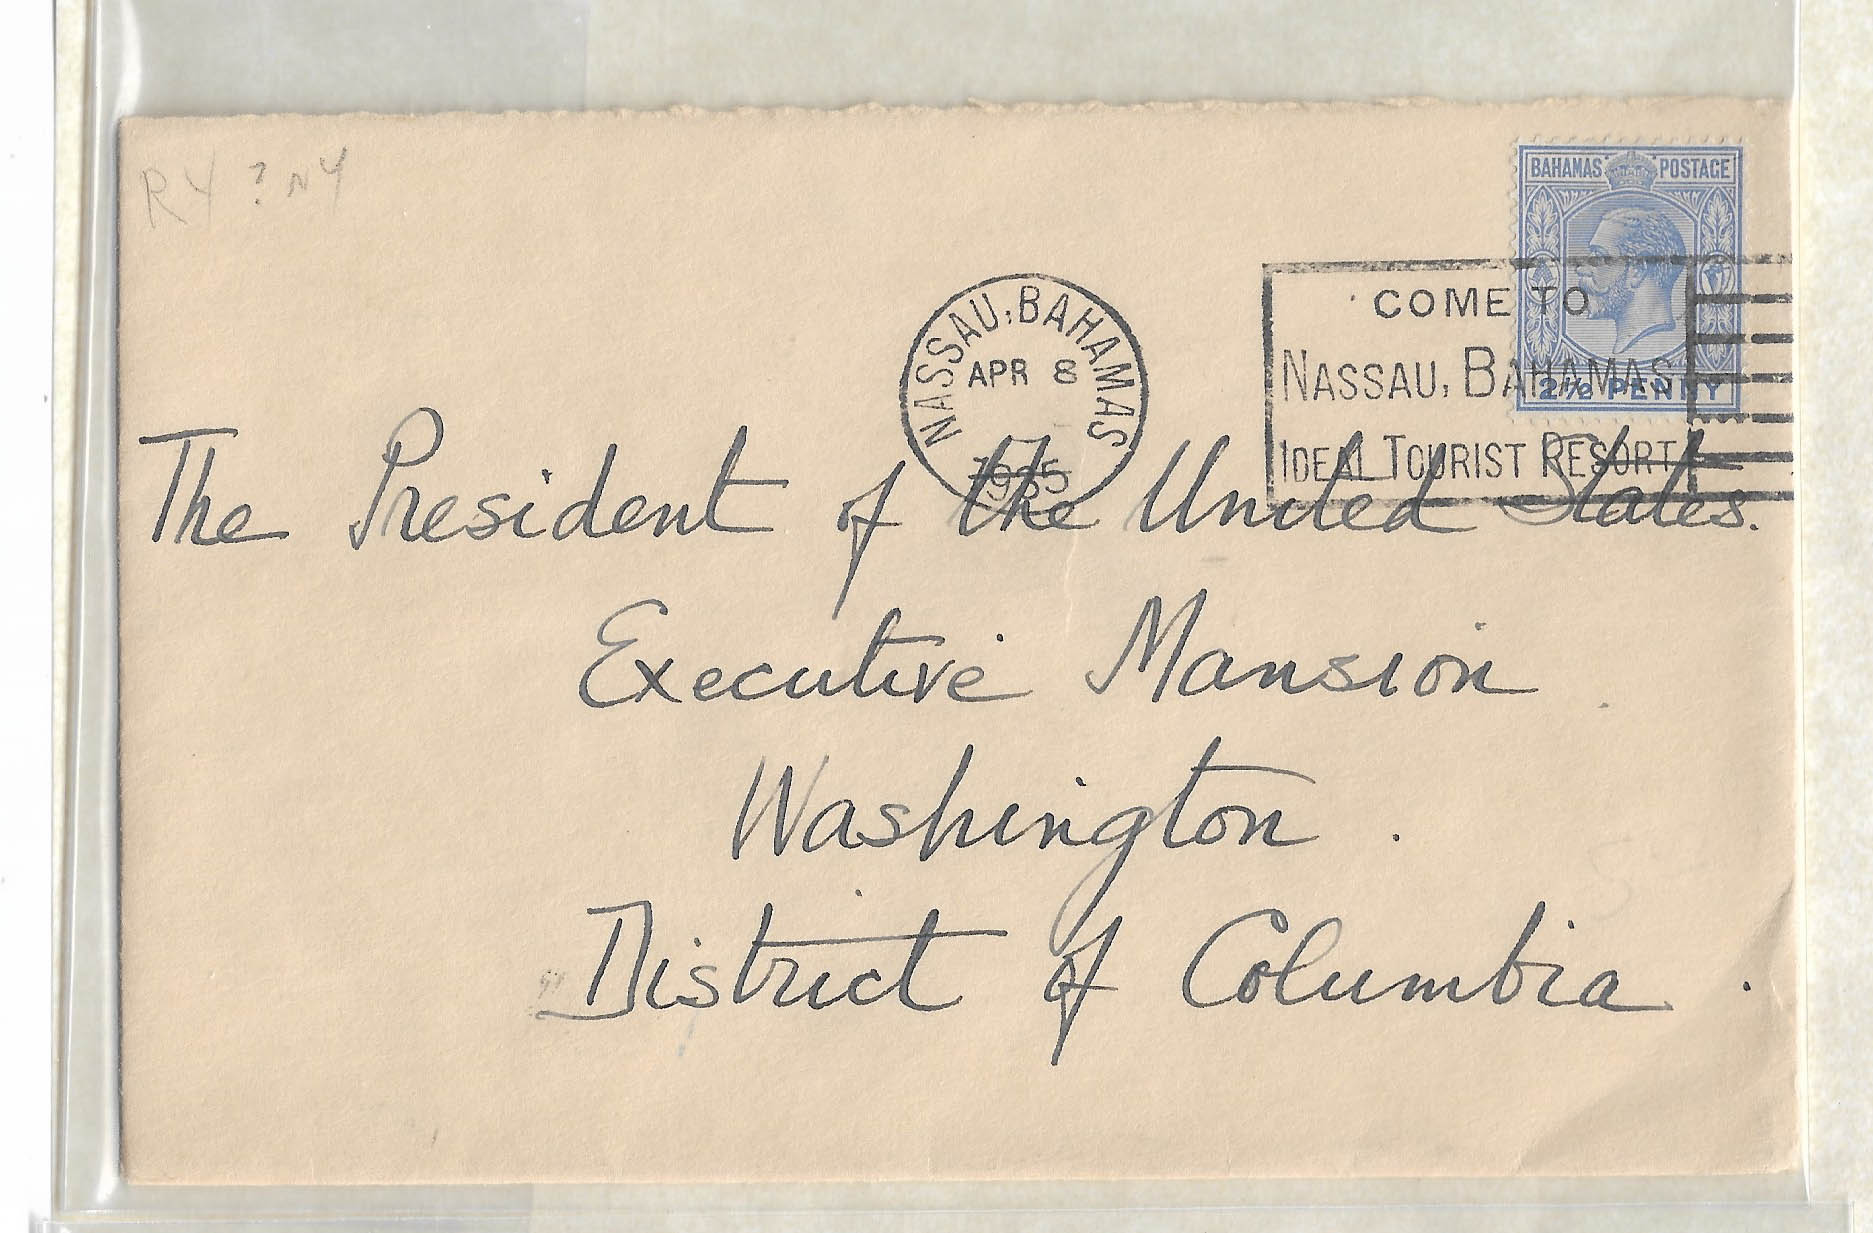 R4 ? N4
BAHAMAS POSTAGE
2½ PENNY
NASSAU, BAHAMAS
APR 8
1935
COME TO
NASSAU, BAHAMAS
IDEAL TOURIST RESORT
The President of the United States.
Executive Mansion
Washington .
District of Columbia .